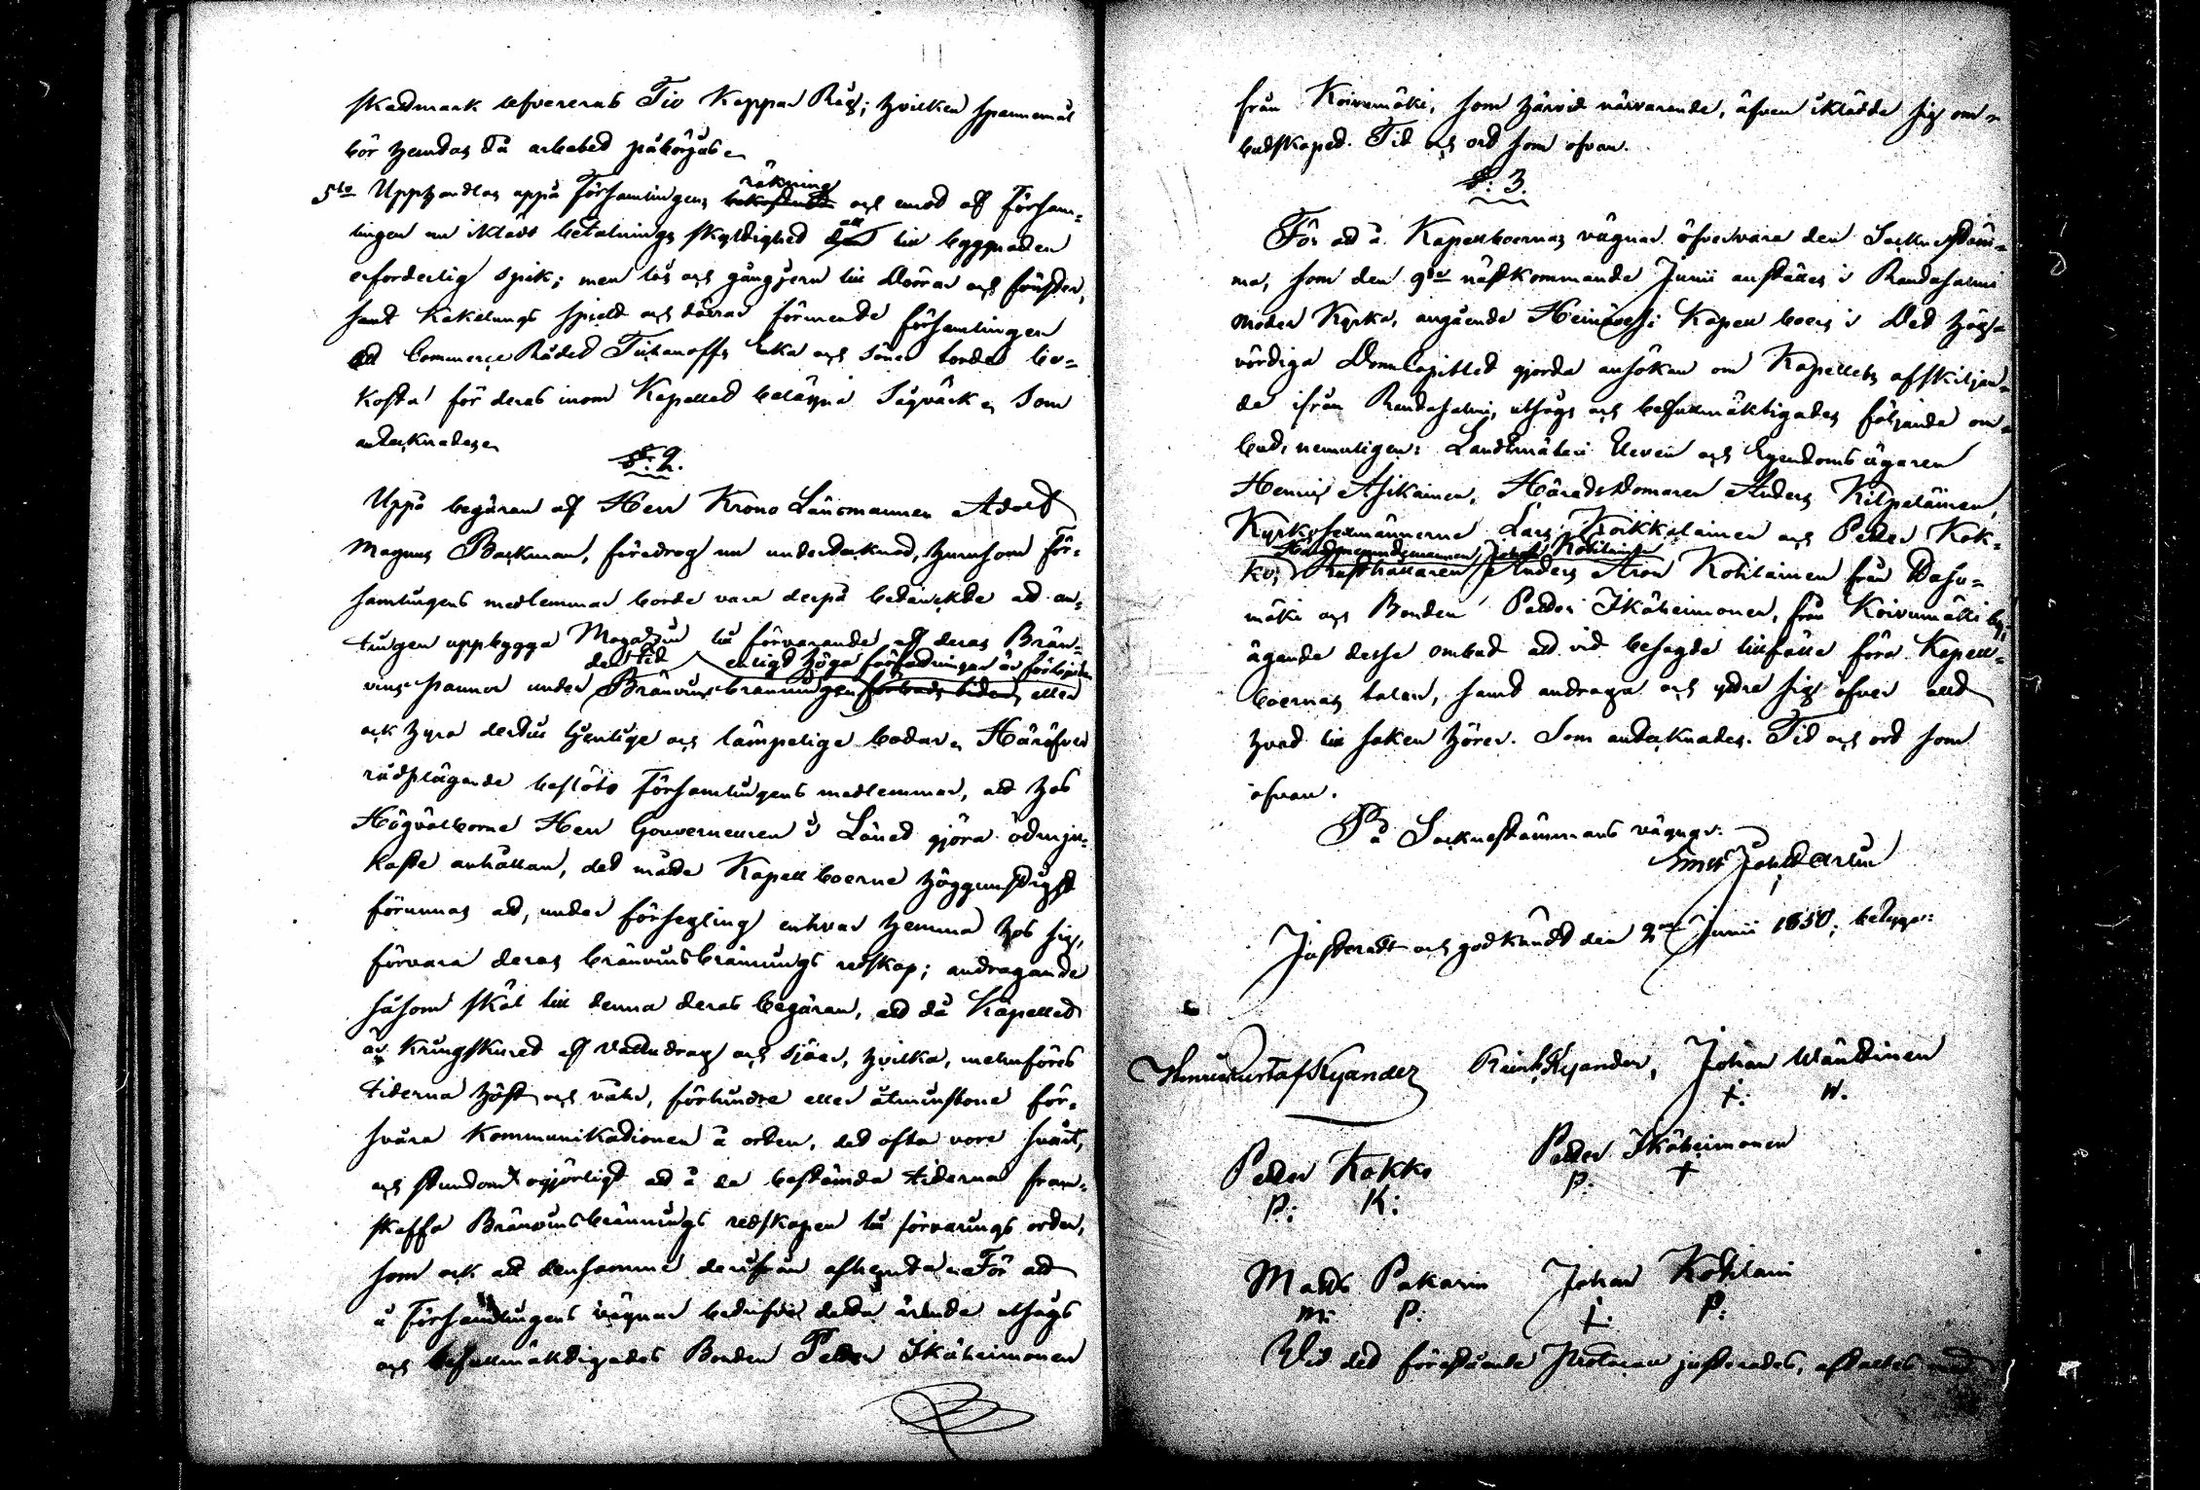 skattmark lefvereras Tio Kappar Råg; hvilken spannemål
bör hemtas då arbetet påbörjas.
5to Upphandlas uppå Församlingens räkning och emot af Försam-
lingen nu iklädt betalnings skyldighet allt till byggnaden
erforderlig spik; men lås och gångjern till Dörrar och fönster,
samt Kakelungs spjeld och dörrar förmente församlingen
att Commerce Rådet Tichanoffs Enka och söner torde be-
kosta för deras inom Kapellet belägna Sågverk. Som
antecknades.
§. 2.
Uppå begäran af Herr Krono Länsmannen Adolf
Magnus Backman, föredrog un undertecknad, huruhom för-
samlingens medlemmar borde vara derpå betänckte att an-
tingen uppbygga Magazin till förvarande af deras Brän-
den tid enligt höga författningar är förbjuden
vins pannor under Bränvinsbränningen eller
ock hyra dertill tjenlige och lämpelige bodar. Häröfver
rådplägande beslöto Församlingens medlemmar, att hos
Högvälborne Herr Gouverneuren i Länet gjöra ödmju-
kaste anhållan, det måtte Kapellboerne höggunstigst
förunnas att, under försegling enhvar hemma hos sig,
förvara deras bränvinsbrännings redskap; andragande
såsom skäl till denna deras begäran, att då Kapellet
är kringskuret af Vattudrag och sjöar, hvilka, menföres
tiderna höst och vår, förhindra eller åtminstone för-
svåra kommunikationen å orten, det ofta vore svårt,
och stundom ogjörligt att å de bestämda tiderna fram-
skaffa Bränvinsbrännings redskapen till förvarings orten,
som ock att densamme derifrån afhemta. För att
å Församlingens vägnar bedrifva detta ärende uthågs
och befullmäktigades Bonden Petter Ikäheimonen
från Koivumäki, som härvid närvarande, äfven iklädde sig om-
budskapet. Tid och ort som ofvan.
§. 3.
För att å Kapellboernas vägnar öfvervara den Sockenstäm-
ma, som den 9de nästkommande Junii anställes i Randasalmi
Moder Kyrka, angående Heinävesi Kapell boers i Det högh-
vördiga Domcapitlet gjorda ansökan om Kapellets afskiljan-
de ifrån Randasalmi, uthågs och befullmäktigades följande om-
bud, nemligen: Landtmäteri Eleven och Egendomsägaren
Henric Asikainen, Häradsdomaren Anders Kilpeläinen,
Kyrkosexmännerne Lars Kroikkalainen och Petter Kok-
ko, Rusthållaren Anders Aron Kohilainen från Vasu-
mäki och Bonden Petter Ikäheimonen, från Koivumäki by,
ägande desse ombud att vid besagde tillfälle föra Kapell-
boernas talan, samt andraga och yttra sig öfver allt
hvad till saken hörer. Som antecknades. Tid och ort som
ofvan.
På Sockenstämmans vägnar:
Justeradt och godkändt den 2dra Junii 1850; betyga:
Henric Gustaf Kyander Reinh. Kyander, Johan Wänttinen
+. W.
Petter Kokko Petter Ikäheimonen
P: K: P: +
Matts Pakarin Johan Kohilain
M: P: +: P:
Vid det förestående Protocoll justerades, afstaltes